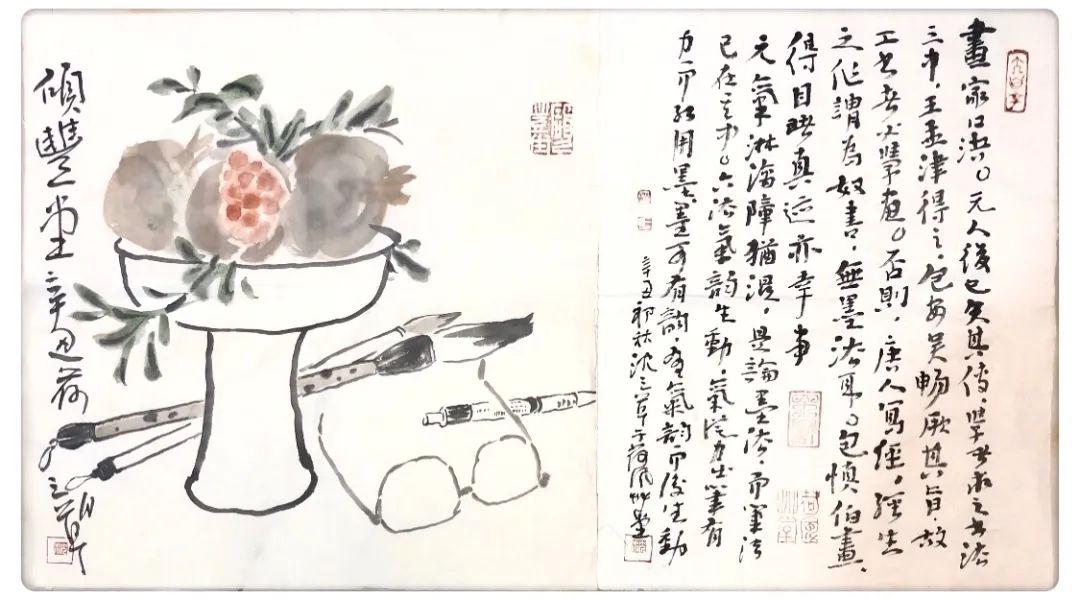 畫家口決。元人後已失其傳,學者求之書法
三中,王孟津得之。包安吳暢厥其旨,故
工書者必學畫。否則,唐人寫經,經生
之作謂為奴書,無墨法耳。包慎伯畫,
得目睹真迹亦幸事
元氣淋漓障猶濕,是論墨法,而筆法
已在其中。六法氣韵生動,氣從力出筆有
力而能用墨,墨可有韵,有氣韵而後生動
辛丑初秋沈三草于荷風草堂
傾豐堂辛丑荷月三草